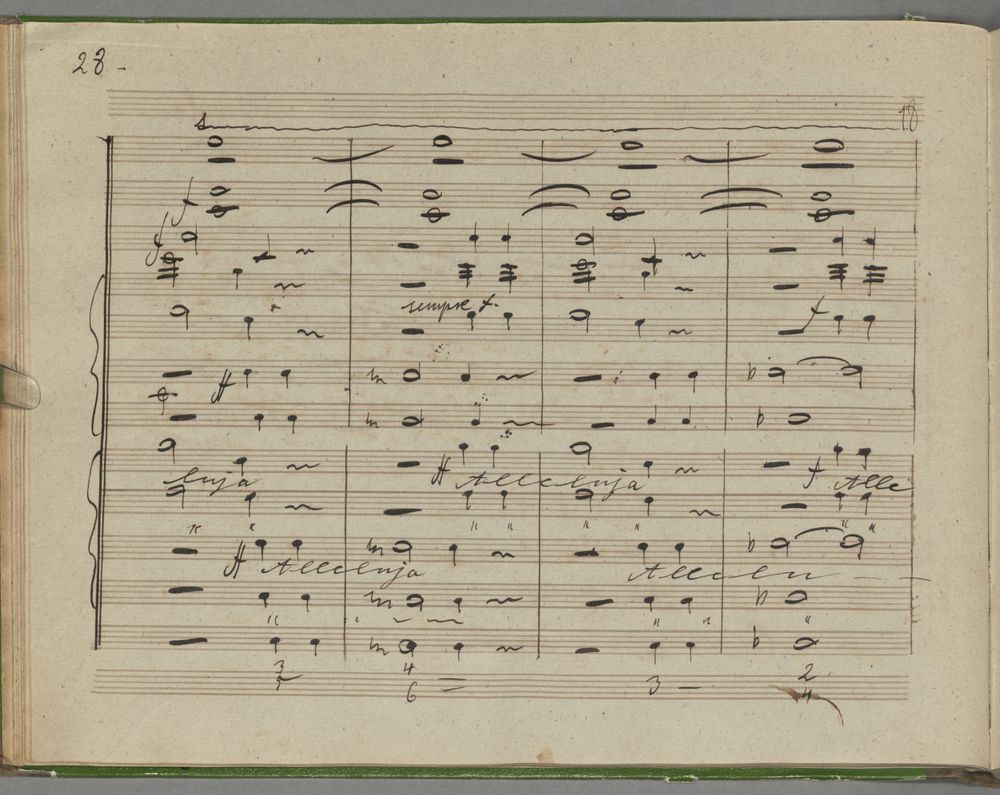 28 -
18
f
f
sempre f.
f
ff
luja
ff Alleluja
f Alle
ff Alleluja
Allelu
3
5
4
6
3 -
2
4